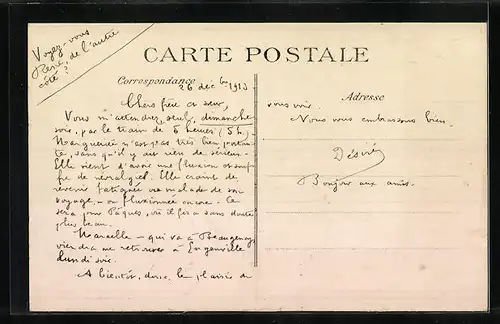 Voyez-vous
René, de l'autre
côté ?
CARTE POSTALE
Correspondance
26 déc bre 1913
Adresse
Chers frère et sœur,
Vous m'attendrez, seul, dimanche
soir, par le train de 5 heures (5 h.)
Marguerite n'est pas très bien portan-
te, sans qu'il y ait rien de sérieux.
Elle vient d'avoir une fluxion et souf-
fre de névralgies. Elle craint de
revenir fatiguée ou malade de son
voyage, ou fluxionnée encore. Ce
sera pour Pâques, où il fera sans doute
plus beau.
Marcelle - qui va à Beaugency,
viendra me retrouver à Engenville
lundi soir.
A bientôt, donc, le plaisir de
vous voir.
Nous vous embrassons bien.
Désiré
Bonjour aux amis.